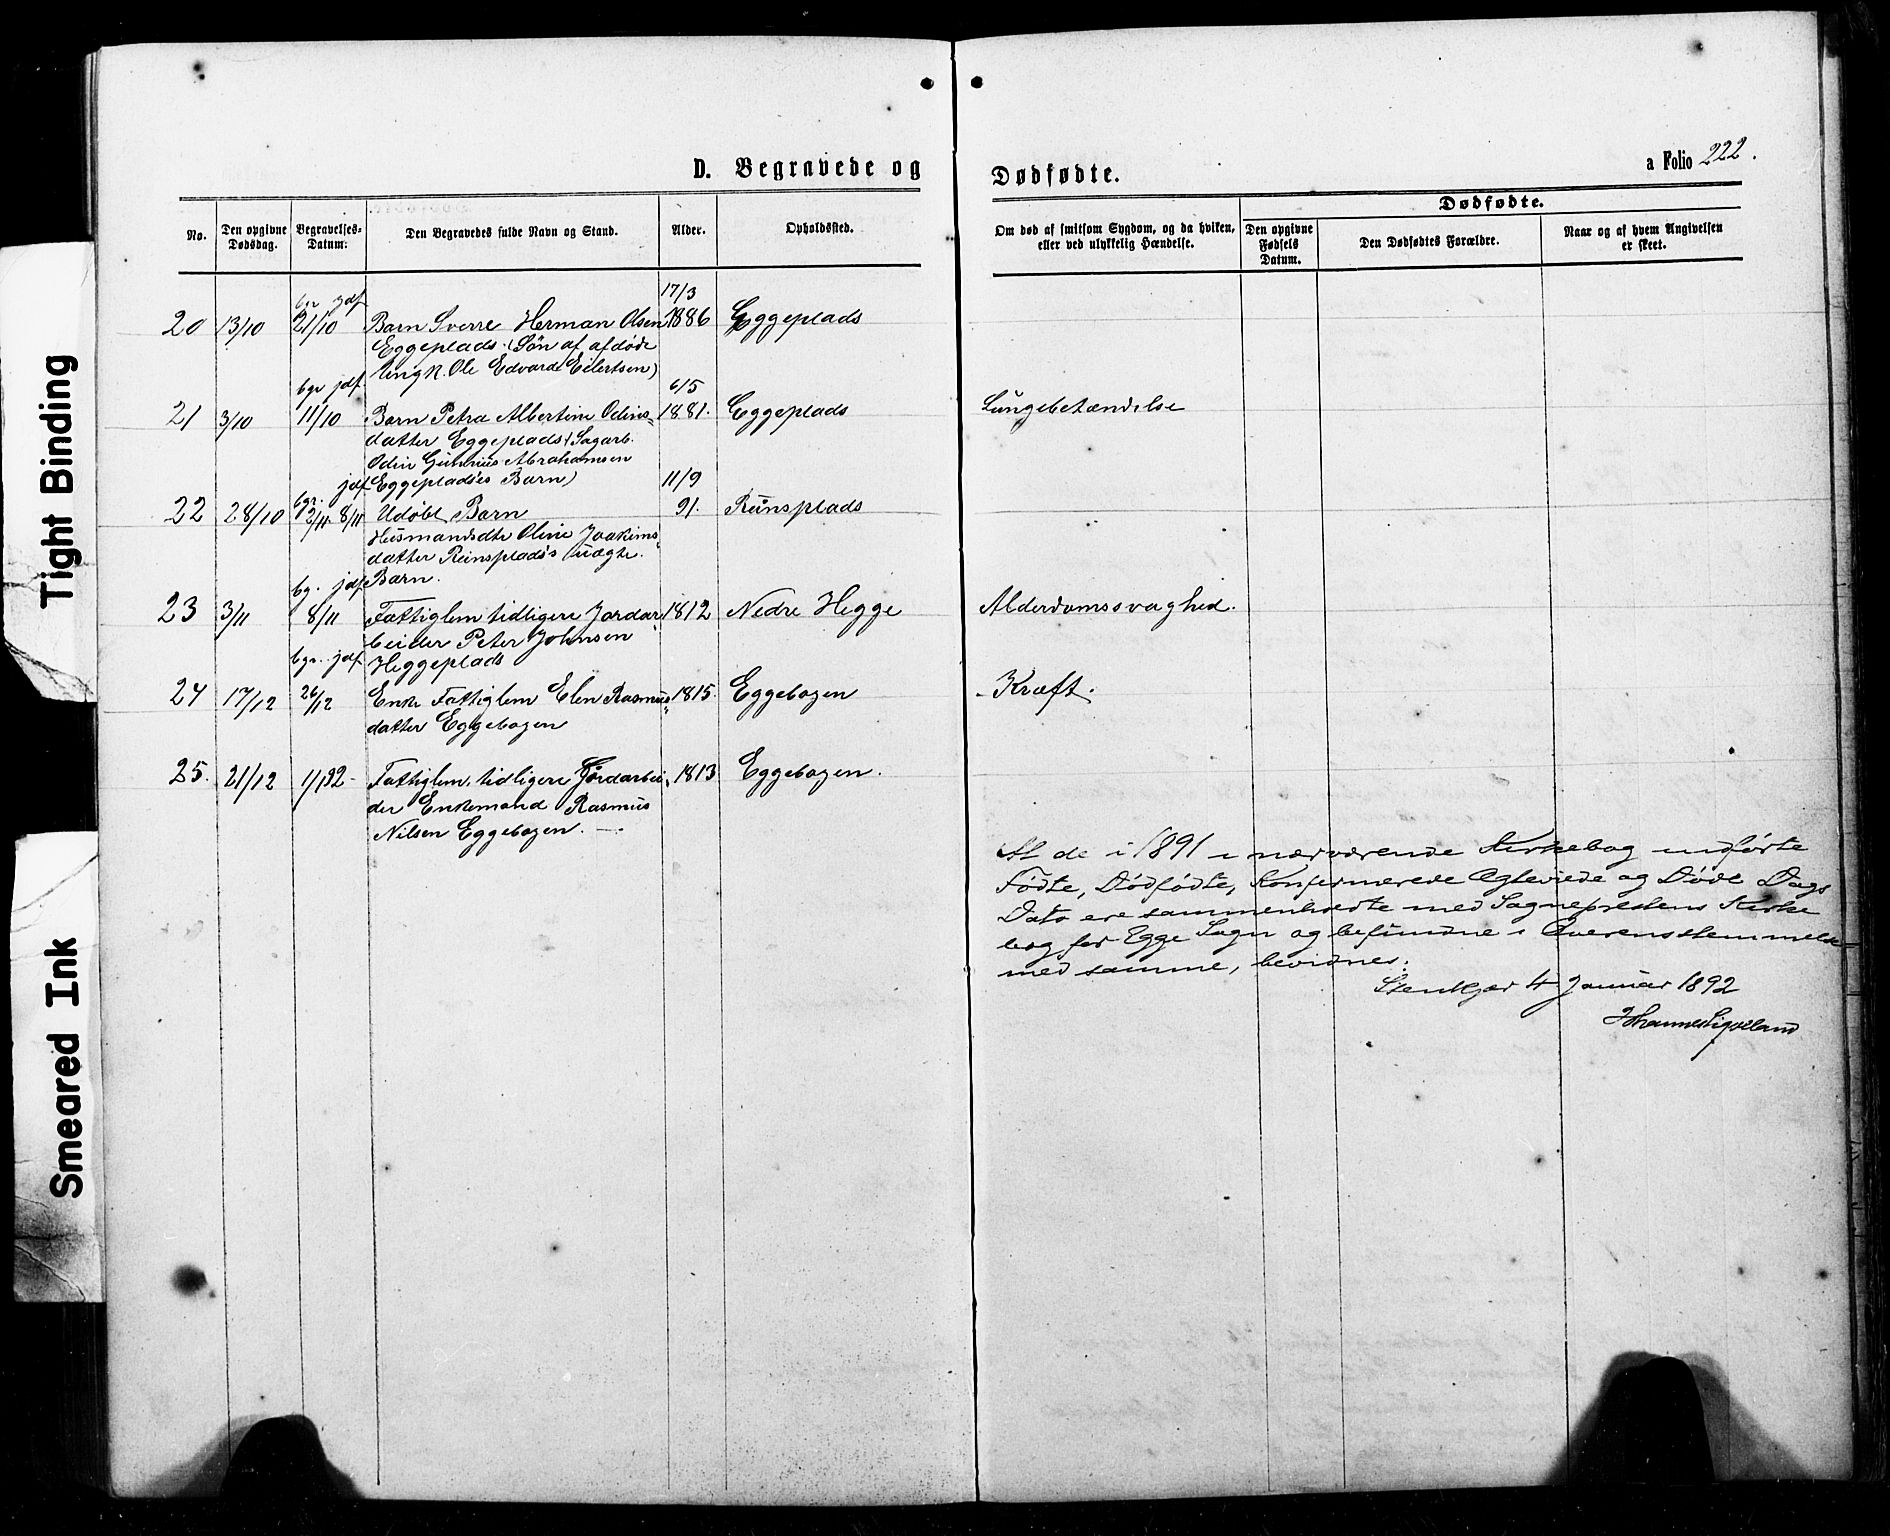 Tight Binding
Smeared Ink
D. Begravede og Dødfødte.
a Folio 222.
No.
Den opgivne Dødsdag.
Begravelses-Datum:
Den Begravedes fulde Navn og Stand.
Alder.
Opholdssted.
Om død af smitsom Sygdom, og da hviken,
eller ved ulykkelig Hændelse.
Dødfødte.
Den opgivne Fødsels Datum.
Den Dødfødtes Forældre.
Naar og af hvem Angivelsen er skeet.
bgr. jdf. 17/3
20 13/10 21/10 Barn Sverre Herman Olsen 1886 Eggeplads
Eggeplads. (Søn af afdøde
Ungk. Ole Edvard Eilertsen)
bgr jdf. 6/5
21 3/10 11/10 Barn Petra Albertine Odins- 1881. Eggeplads Lungebetændelse
datter Eggeplads (Sagarb.
Odin Gunnius Abrahamsen
jdf. Eggeplads's Barn) 11/9
bgr.
22 28/10 2/11 8/11 Udøbt Barn 91. Runsplads
Husmandsdtr Oline Joakims-
datter Runsplads's uægte
bg. jdf. Barn.
23 3/11 8/11 Fattiglem tidligere Jordar- 1812 Nedre Hegge Alderdomssvaghed.
beider Peter Johnsen
bgr. jdf. Heggeplads
24 17/12 26/12 Enke Fattiglem Elen Rasmus- 1815. Eggebogen - Kræft.
datter Eggebogen
25. 21/12 1/1 92 - Fattiglem, tidligere Jordarbei- 1813 Eggebogen.
der Enkemand Rasmus
Nilsen Eggebogen. —
At de i 1891 i nærværende Kirkebog indførte
Fødte, Dødfødte, Konfirmerede Ægteviede og Døde Dags
Dato ere sammenholdte med Sognepræstens Kirke
bog for Egge Sogn og befundne i Overensstemmelse
med samme, bevidnes.
Stenkjær 4 Januar 1892
Johannes Sigveland